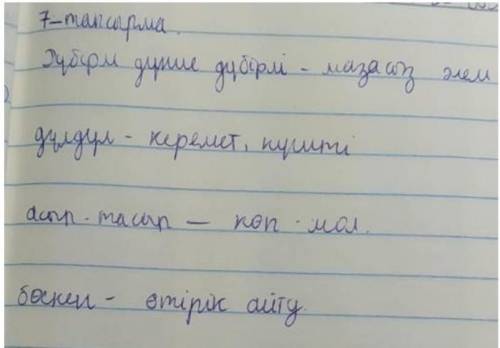 7-тапсырма.
Дүбірлі дүние дүбірлі - мазасыз әлем
дүлдүл - керемет, күшті
асып-тасып — көп-мол.
бөскен - өтірік айту